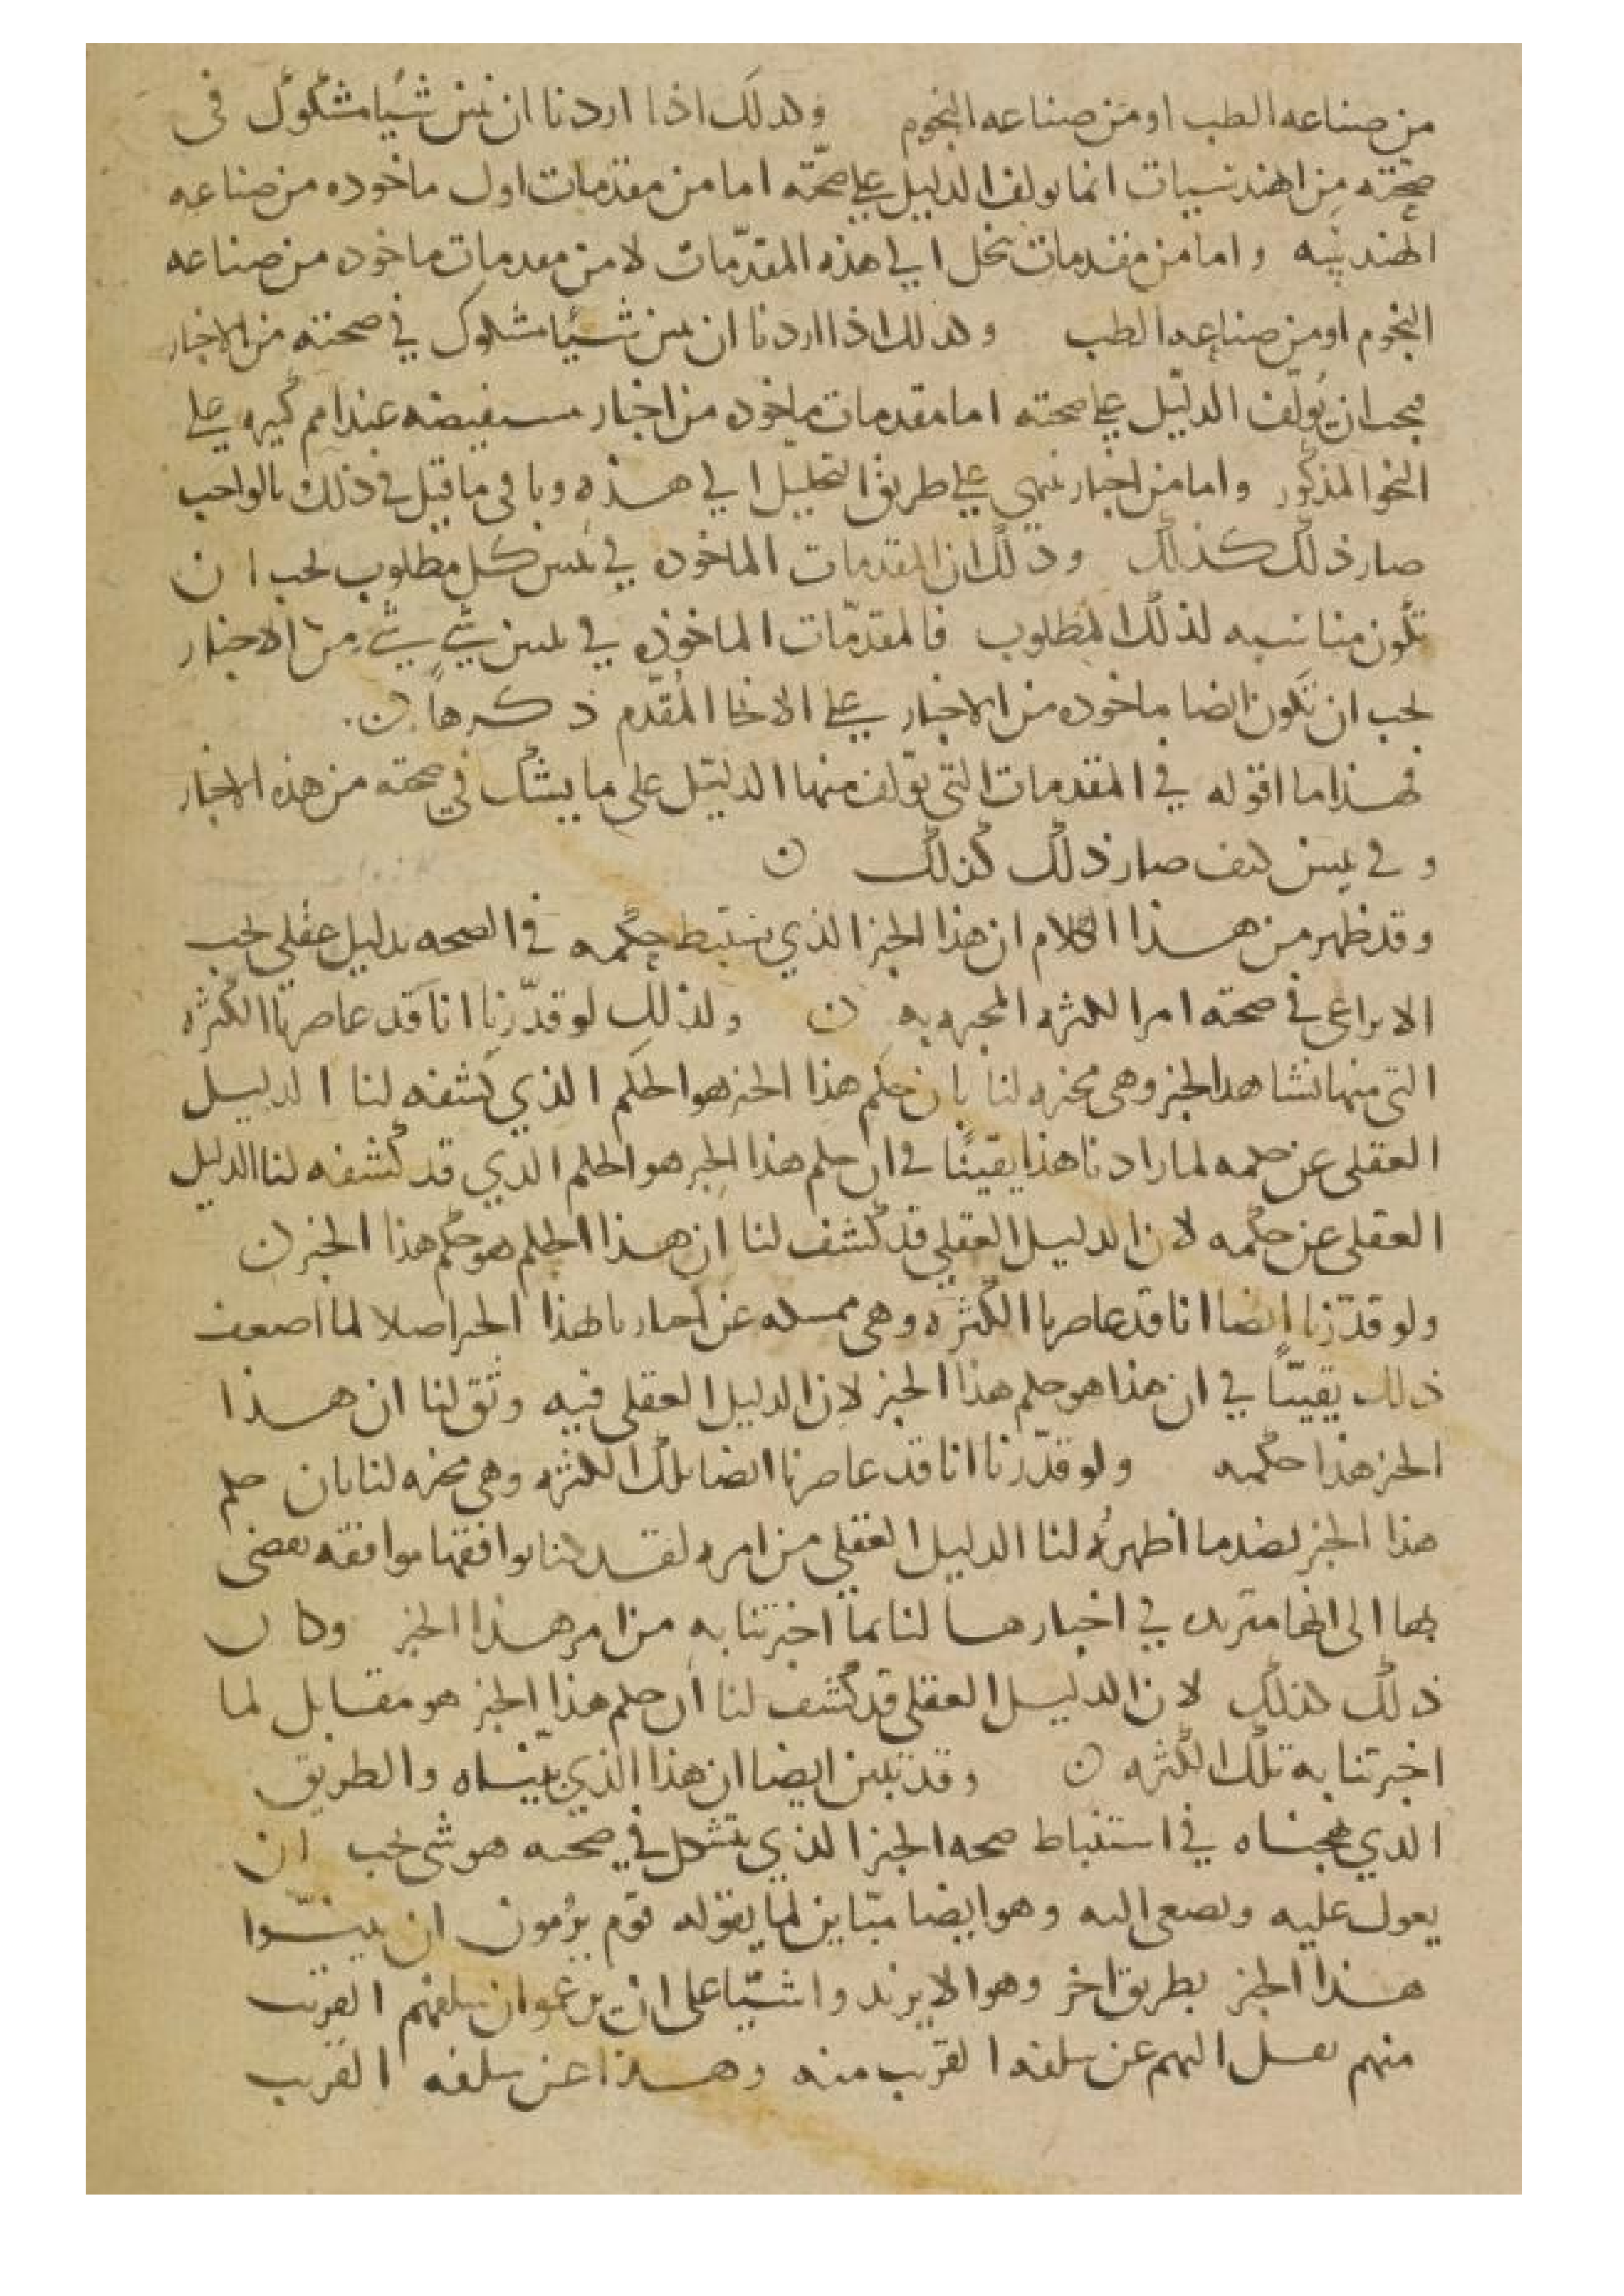 من صناعه الطب او من صناعه النجوم وكدلك اذا اردنا ان نبين شيًا مشكوك فى
صحته من الهندسيات انما يولف الدليل على صحّته اما من مقدمات اول ماخوده من صناعه
الهندسه واما من مقدمات تنحل الي هذه المقدّمات لا من مقدمات ماخوده من صناعه
النجوم او من صناعه الطب وكدلك اذا اردنا ان نبين شيًا مشكوك في صحته من الاخبار
فيجب ان يُولّف الدليل على صحته اما مقدمات ماخوده من اخبار مستفيضه عند امم كثيره على
النحو المذكور واما من اخبار تنتهى على طريق التحليل الي هذه وباقى ما قيل في ذلك بالواجب
صار ذلك كذلك وذلك ان المقدمات الماخوده في تبين كل مطلوب يجب ان
تكون مناسبه لذلك المطلوب فالمقدّمات الماخوذه في تبين شي شي من الاخبار
يجب ان تكون ايضا ماخوده من الاخبار على الانحا المُقدّم ذكرها ن
فهذا ما اقوله في المقدمات التى يولف منها الدليل على ما يشك في صحته من هذه الاخبار
وفي تبين كيف صار ذلك كذلك ن
وقد ظهر من هذا الكلام ان هذا الخبر الذي نستنبط حكمه في الصحه بدليل عقلي يجب
الا يراعى في صحته امر الكثره المخبره به ن ولذلك لو قدّرنا انا قد عاصرنا الكثره
التى منها نشا هذا الخبر وهى مخبره لنا بان حكم هذا الخبر هو الحكم الذي كشفه لنا الدليل
العقلى عن حكمه لما زادنا هذا يقينًا في ان حكم هذا الخبر هو الحكم الذي قد كشفه لنا الدليل
العقلى عن حكمه لان الدليل العقلي قد كشف لنا ان هذا الحكم هو حكم هذا الخبر ن
ولو قدّرنا ايضا انا قد عاصرنا الكثره وهى ممسكه عن اخبارنا بهذا الخبر اصلا لما اضعف
ذلك يقينًا في ان هذا هو حكم هذا الخبر لان الدليل العقلى فيه وثق لنا ان هذا
الخبر هذا حكمه ولو قدّرنا انا قد عاصرنا ايضا تلك الكثره وهى مخبره لنا بان حكم
هذا الخبر بضد ما اظهرهُ لنا الدليل العقلي من امره لقد كنا نوافقها موافقه نفضى
بها الى انها متزيده في اخبارها لنا بما اخبرتنا به من امر هذا الخبر وكان
ذلك كذلك لان الدليل العقلى قد كشف لنا ان حكم هذا الخبر هو مقابل لما
اخبرتنا به تلك الكثره ن وقد تبين ايضا ان هذا الذي بيّناه والطريق
الذي نهجناه في استنباط صحه الخبر الذي يتشكك في صحته هو شى يجب ان
يعول عليه ويصغى اليه وهو ايضا مباين لما يقوله قوم يرُمون ان يبيّنوا
هذا الخبر بطريق اخر وهو الا يزيدوا شيًا على ان يزعموا ان سلفهم القريب
منهم نقل اليهم عن سلفه القريب منه وهذا عن سلفه القريب